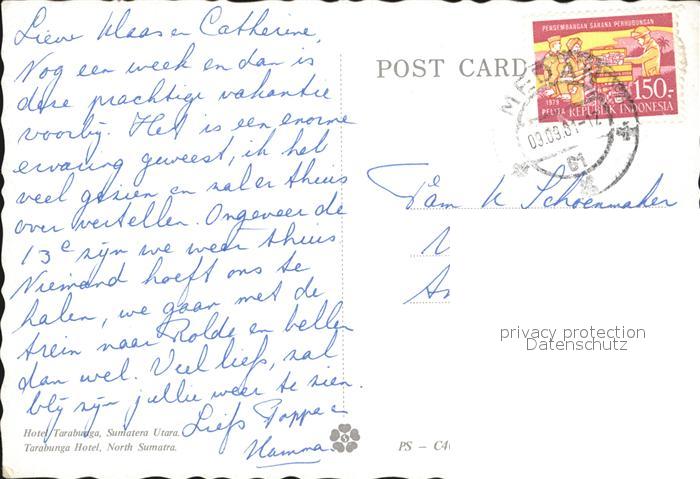 Lieve Klaas en Catherine,
Nog een week en dan is
deze prachtige vakantie
voorbij. Het is een enorme
ervaring geweest, ik heb
veel gezien en zal er thuis
over vertellen. Ongeveer de
13e zijn we weer thuis
Niemand hoeft ons te
halen, we gaan met de
trein naar Rolde en bellen
dan wel. Veel liefs, zal
blij zijn jullie weer te zien.
Liefs Pappa en
Mamma.
Hotel Tarabunga, Sumatera Utara.
Tarabunga Hotel, North Sumatra.
POST CARD
PENGEMBANGAN SARANA PERHUBUNGAN
1979
PELITA REPUBLIK INDONESIA
150.-
MEDAN
03.03.81-12
Fam K Schoenmaker
privacy protection
Datenschutz
PS - C4